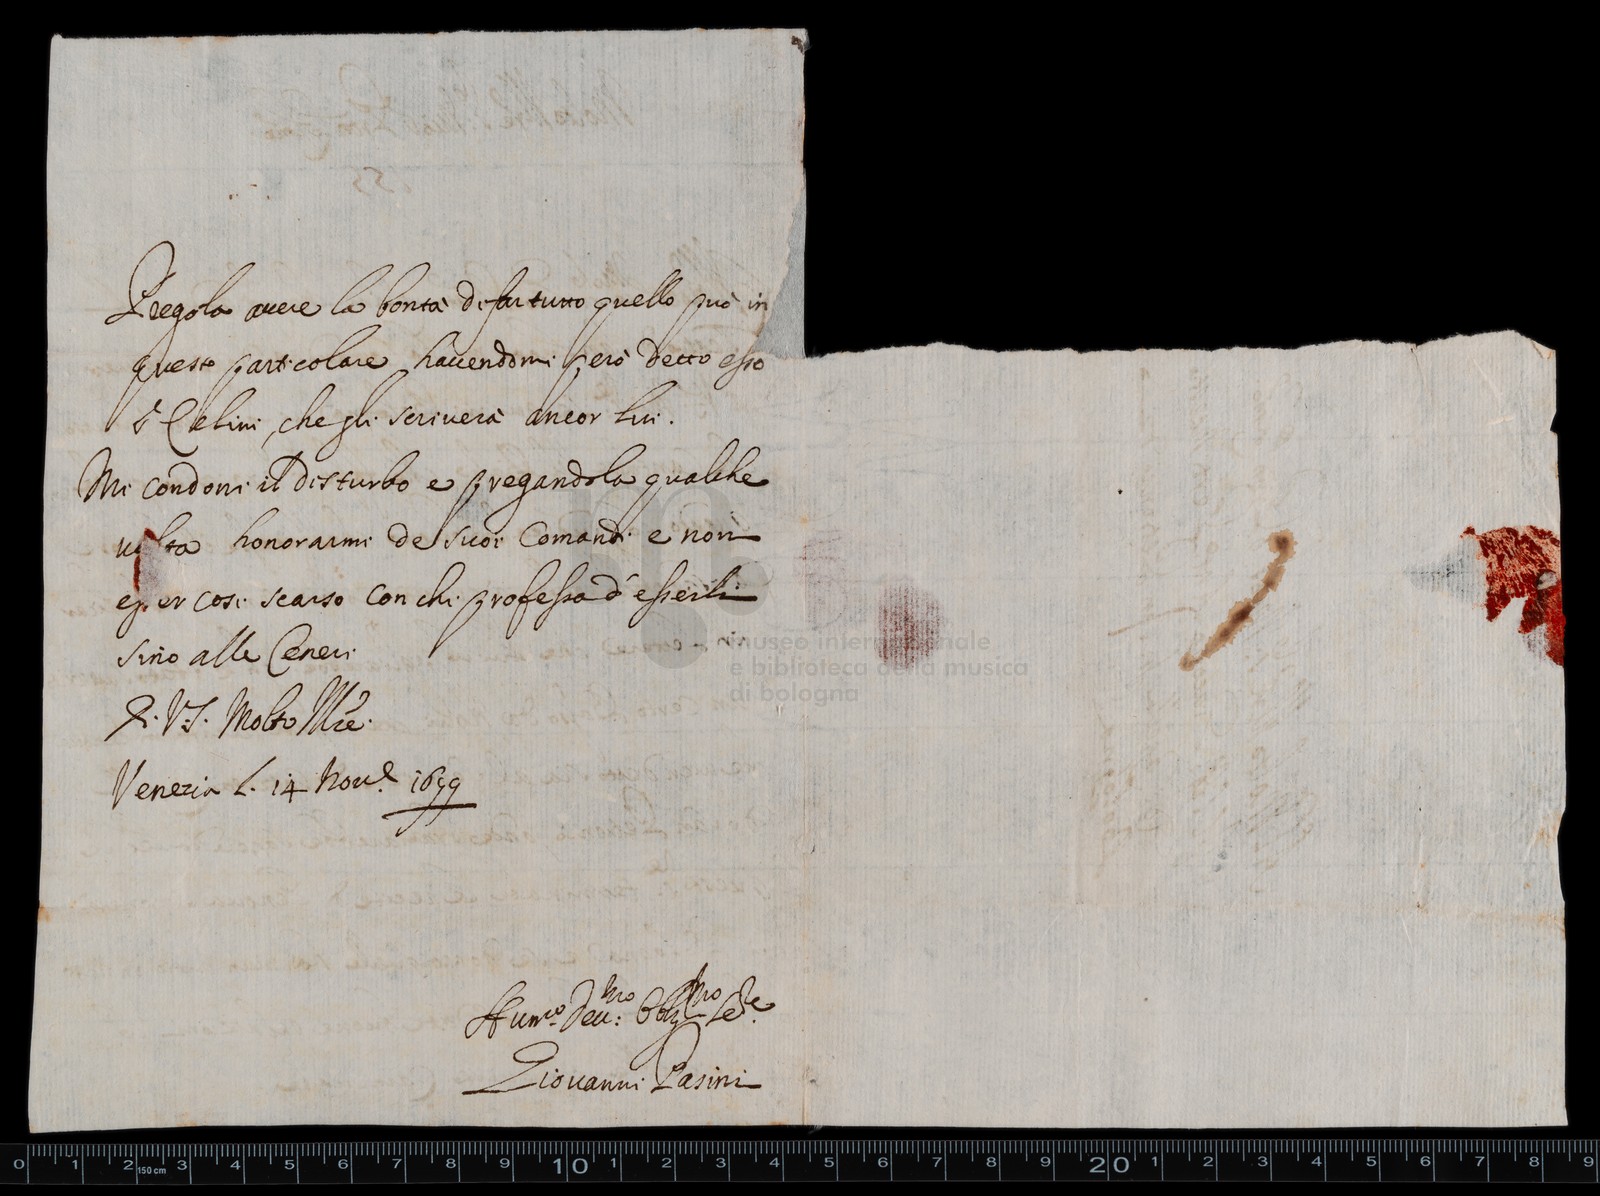 Pregola avere la bontà di far tutto quello può in
questo particolare havendomi però detto esso
S.r Celini, che gli scriverà ancor lui.
Mi condoni il disturbo e pregandola qualche
volta honorarmi de suoi Comandi e non
esser cosi scarso con chi professa d'esserli
sino alle Ceneri
D. V.S. Molto Ill.re
Venezia L. 14 Nov.e 1699
Hum.o Dev.mo Obblig.mo Se.re
Giovanni Pasini
museo internazionale
e biblioteca della musica
di bologna
0 1 2 3 4 5 6 7 8 9 10 1 2 3 4 5 6 7 8 9 20 1 2 3 4 5 6 7 8 9
150 cm